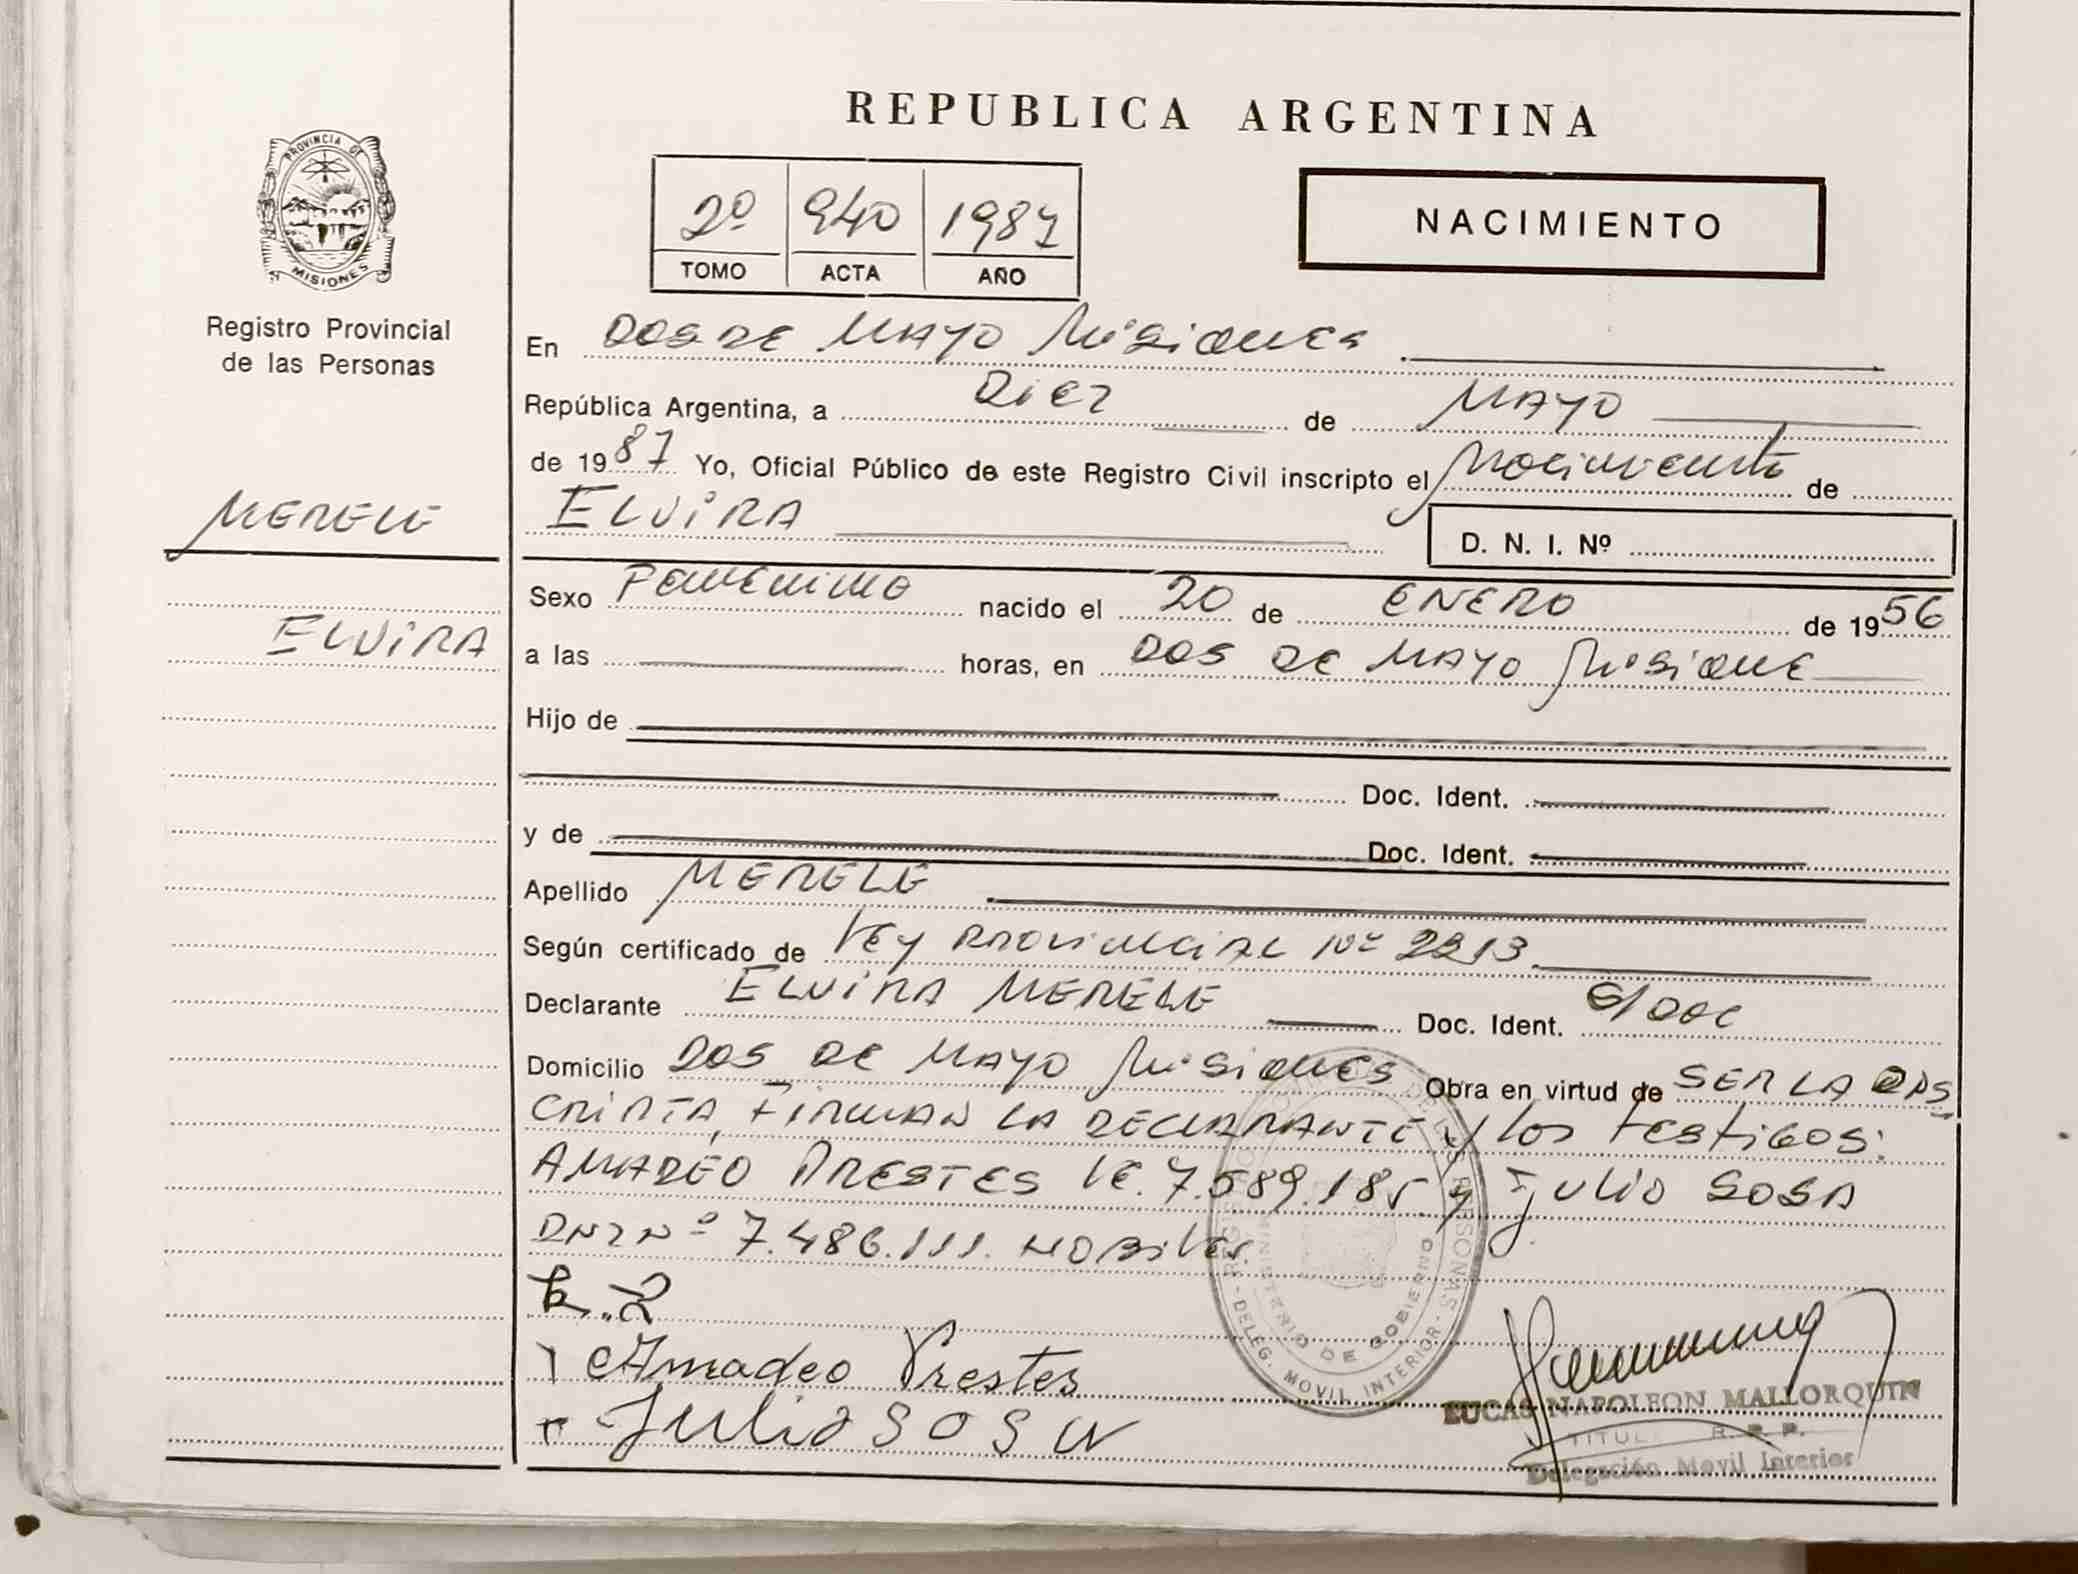 REPUBLICA ARGENTINA
PROVINCIA DE
MISIONES
2º 940 1987
TOMO ACTA AÑO
NACIMIENTO
Registro Provincial
de las Personas
En DOS DE MAYO Misiones
República Argentina, a Diez de MAYO
de 1987 Yo, Oficial Público de este Registro Civil inscripto el Nacimiento de
MERELE
ELViRA
D. N. I. Nº
Sexo Femenino nacido el 20 de ENERO de 1956
ELViRA
a las horas, en DOS DE MAYO Misione
Hijo de
Doc. Ident.
y de Doc. Ident.
Apellido MERELE
Según certificado de Ley PROViNCiAL Nº 2213
Declarante ELViRA MERELE Doc. Ident. S/DOC
Domicilio DOS DE MAYO Misiones Obra en virtud de SER LA
FIRMAN LA DECLARANTE y los testigos:
AMADEO PRESTES LE. 7.589.185 y Julio SOSA
DNI Nº 7.486.111.
Amadeo Prestes
Julio SOSA
DELEG. MOVIL INTERIOR
MINISTERIO DE GOBIERNO
LUCAS NAPOLEON MALLORQUIN
TITUL R. P. P.
Delegación Movil Interior